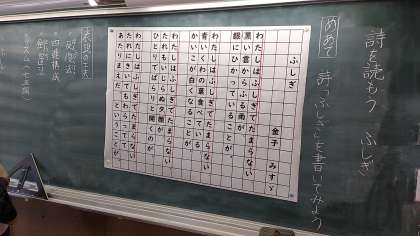 詩を読もう ふしぎ
めあて 詩「ふしぎ」を書いてみよう
ふしぎ
金子 みすゞ
わたしはふしぎでたまらない、
黒い雲からふる雨が、
銀にひかっていることが。
わたしはふしぎでたまらない、
青いくわの葉食べている、
かいこが白くなることが。
わたしはふしぎでたまらない、
たれもいじらぬ夕顔が、
ひとりでぱらりと開くのが。
わたしはふしぎでたまらない、
たれにきいてもわらってて、
あたりまえだ、ということが。
表現の工夫
・反復法
・四連構成
・リズム（七五調）